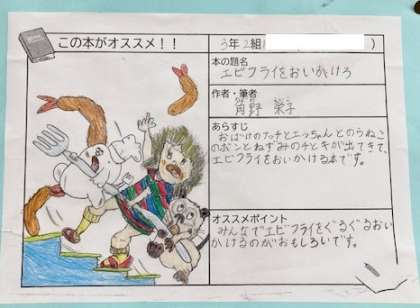 この本がオススメ！！
3年2組(　　　)
本の題名
エビフライをおいかけろ
作者・筆者
角野 栄子
あらすじ
おばけのアッチとエッちゃんとのらねこ
のボンとねずみのチとキが出てきて、
エビフライをおいかける本です。
オススメポイント
みんなでエビフライをぐるぐるおい
かけるのがおもしろいです。